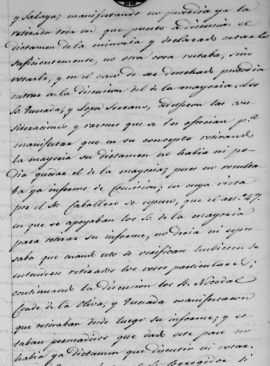 y Salaya; manifestando no podia ya la
retirada toda vez que puesto a discusion el
dictamen de la minoria y declarado estarlo
suficientemente, no otra cosa restaba, sino
votarle, y en el caso de ser desechado pudiera
entrar a la discusion del de la mayoria. Los
Sres Quesada, y Lopez Serrano, hicieron las
y razones que se les ofrecian
manifestar que en su concepto retirando
la mayoria su dictamen no habia ni po
dia quedar el de la mayoria; pues no resulta
ba ya informe de Comision; en cuya vista
por el Sr Caballero se espuso, que el art. 47.
en que se apoyaban los S. de la mayoria
para retirar su informe, no decia ni espre
saba que cuando esto se verifican hubieran de
entenderse retirados los votos particulares;
continuando la discusion los S. Nocedal
Conde de la Oliva, y Quesada manifestaron
que retiraban desde luego su informe; y es
taban persuadidos que dado este paso no
habia ya dictamen que discutir ni votar.